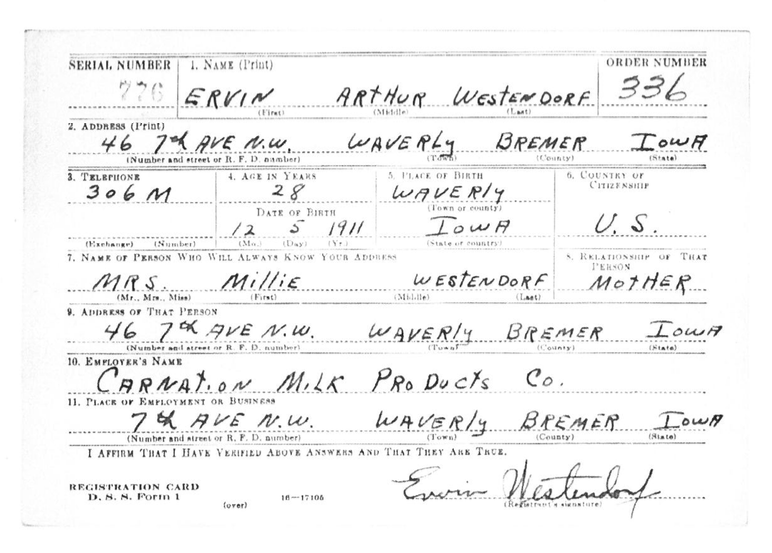 SERIAL NUMBER 1. NAME (Print) ORDER NUMBER
776 ERVIN ARTHUR WESTENDORF 336
(First) (Middle) (Last)
2. ADDRESS (Print)
46 7th AVE N.W. WAVERLY BREMER IOWA
(Number and street or R. F. D. number) (Town) (County) (State)
3. TELEPHONE 4. AGE IN YEARS 5. PLACE OF BIRTH 6. COUNTRY OF CITIZENSHIP
306 M 28 WAVERLY
(Town or county)
DATE OF BIRTH
12 5 1911 IOWA U.S.
(Exchange) (Number) (Mo.) (Day) (Yr.) (State or country)
7. NAME OF PERSON WHO WILL ALWAYS KNOW YOUR ADDRESS 8. RELATIONSHIP OF THAT PERSON
MRS. MILLIE WESTENDORF MOTHER
(Mr., Mrs., Miss) (First) (Middle) (Last)
9. ADDRESS OF THAT PERSON
46 7th AVE N.W. WAVERLY BREMER IOWA
(Number and street or R. F. D. number) (Town) (County) (State)
10. EMPLOYER'S NAME
CARNATION MILK PRODUCTS CO.
11. PLACE OF EMPLOYMENT OR BUSINESS
7th AVE N.W. WAVERLY BREMER IOWA
(Number and street or R. F. D. number) (Town) (County) (State)
I AFFIRM THAT I HAVE VERIFIED ABOVE ANSWERS AND THAT THEY ARE TRUE.
REGISTRATION CARD
D. S. S. Form 1 (over) 16—17105 Ervin Westendorf
(Registrant's signature)